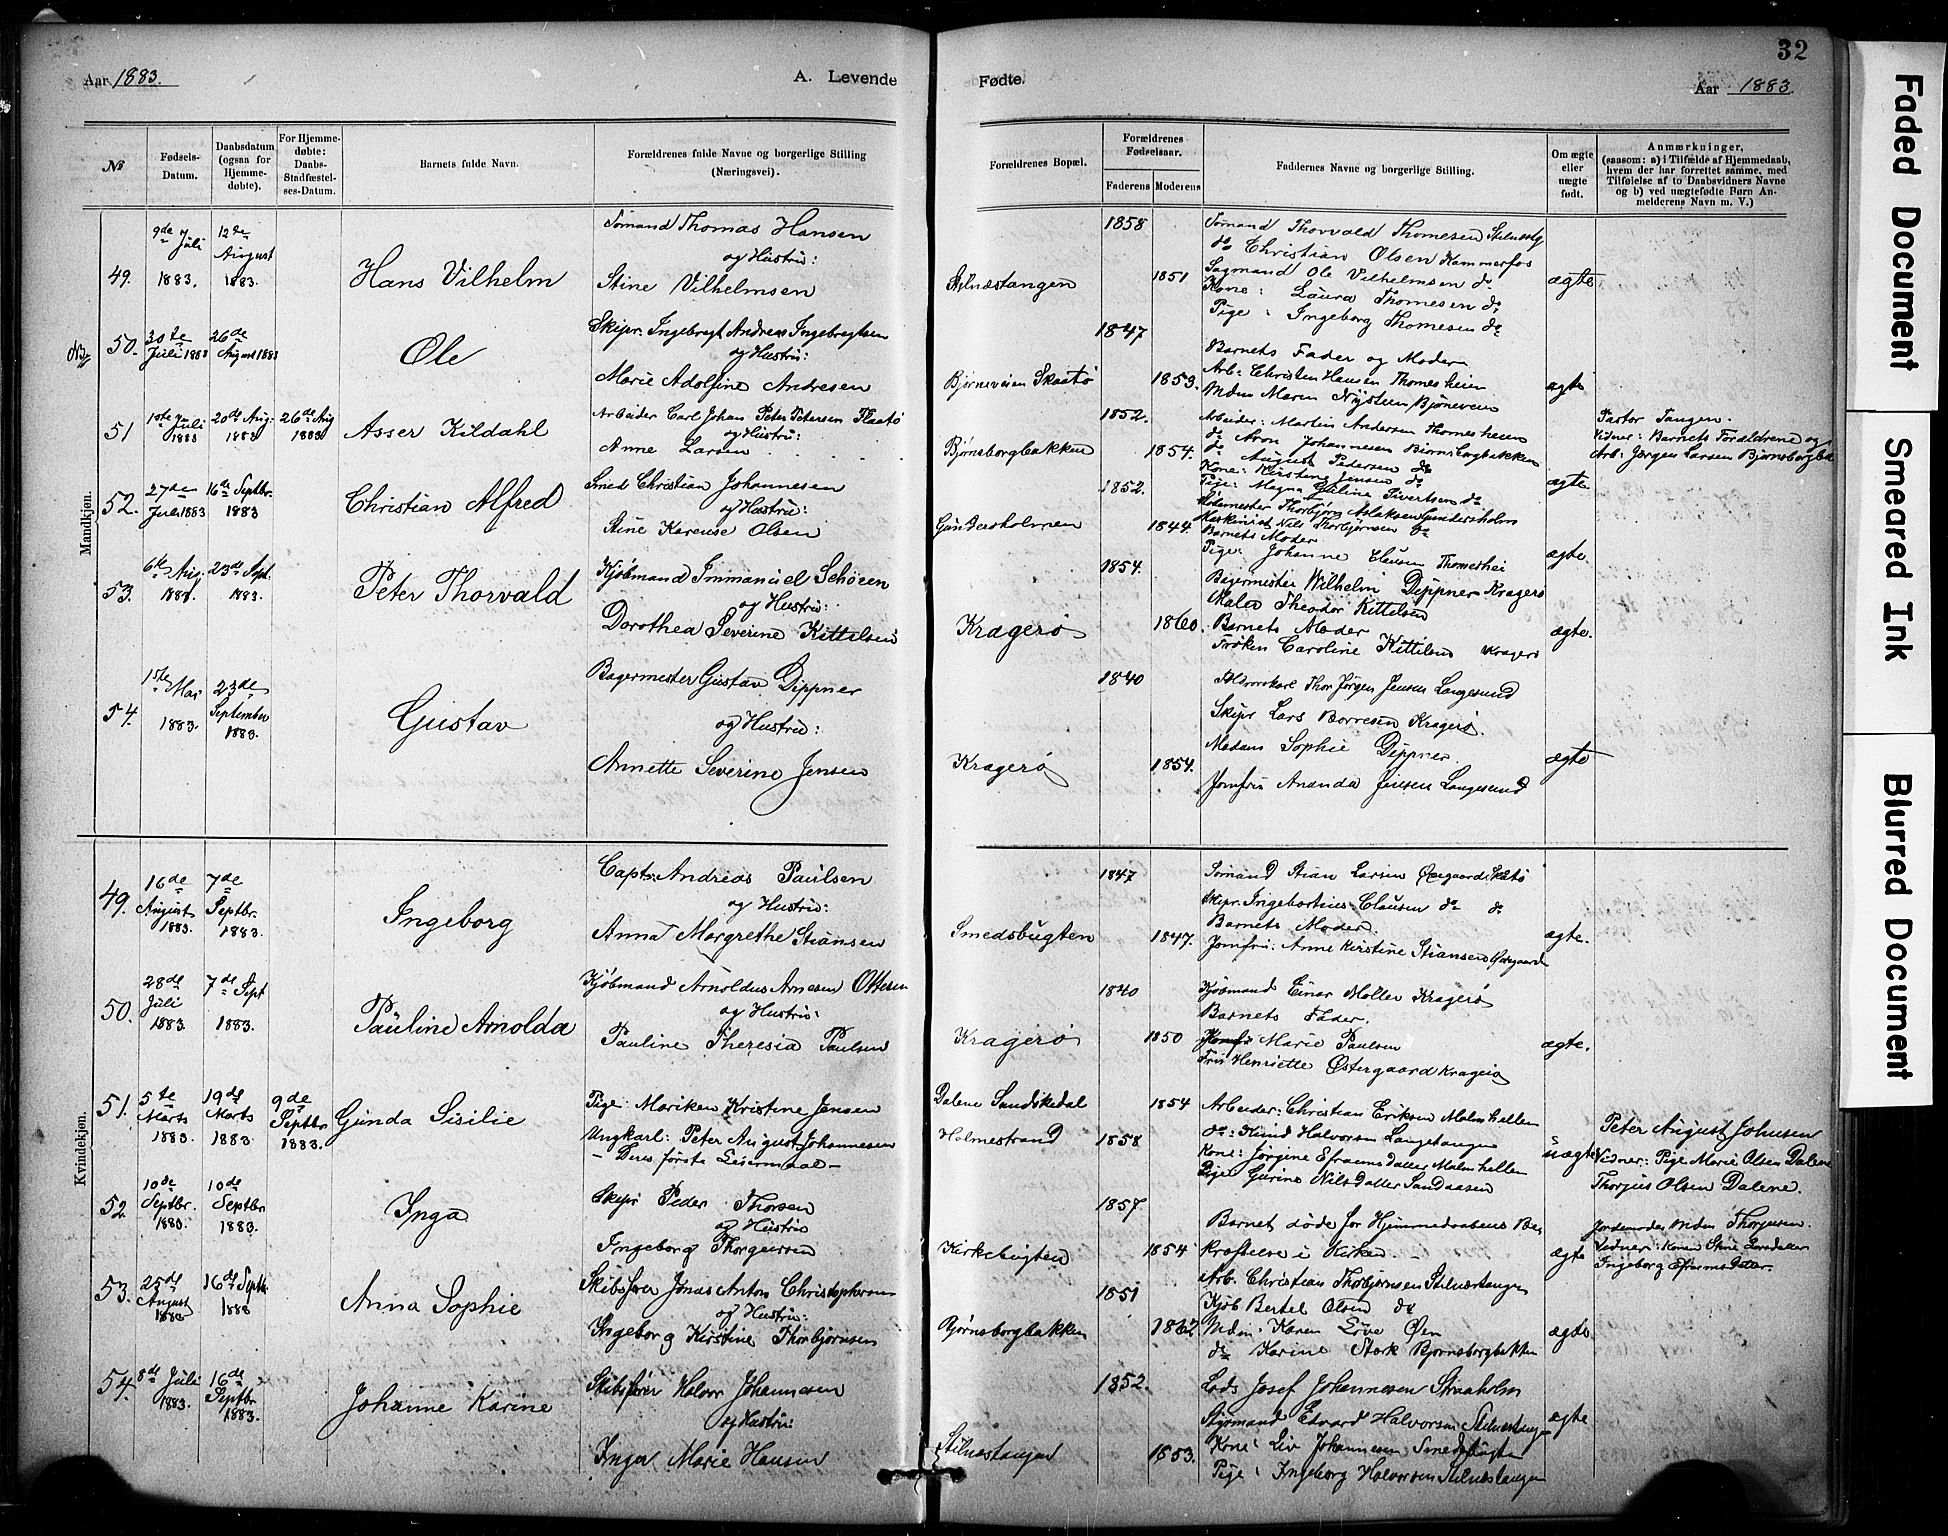 Aar 1883.
A. Levende
Fødte.
Aar 1883.
32
№
Fødsels-Datum.
Daabsdatum (ogsaa for Hjemmedøbte).
For Hjemmedøbte: Daabs-Stadfæstelses-Datum.
Barnets fulde Navn.
Forældrenes fulde Navne og borgerlige Stilling (Næringsvei).
Forældrenes Bopæl.
Forældrenes Fødselsaar.
Faderens
Moderens
Faddernes Navne og borgerlige Stilling.
Om ægte eller uægte født.
Anmærkninger,
(saasom: a) i Tilfælde af Hjemmedaab,
hvem der har forrettet samme, med
Tilføielse af to Daabsvidners Navne
og b) ved uægtefødte Børn Anmelderens Navn m. V.)
Mandkjøn.
49. 9de Juli 1883. 12te August 1883. Hans Vilhelm
Sømand Thomas Hansen
og Hustru:
Stine Vilhelmsen
Stilnæstangen 1858 1851
Sømand Thorvald Thomesen Stilnæstg
do Christian Olsen Kammerfos
Sagmand Ole Vilhelmsen do
Kone: Laura Thomesen do
Pige: Ingeborg Thomesen do
ægte
50. 30te Juli 1883 26de August 1883 Ole
Skipr. Ingebregt Andreas Ingebregtsen
og Hustru:
Marie Adolfine Andresen
Bjørneveien Skaatø 1847 1853.
Barnets Fader og Moder
Arb: Christen Hansen Thomesheien
Mdm Maren Nysteen Bjørneveien
ægte
51 1ste Juli 1883 20de Aug. 1883 26de Aug 1883 Asser Kildahl
Arbeider Carl Johan Peter Petersen
og Hustru:
Anne Larsen
Bjørnsborgbakken 1852. 1854.
Arbeider: Martin Andersen Thomesheien
do Aron Johannesen Bjørnsborgbakken
do August Pedersen do
Kone: Kirstine Jensen do
Pige: Magna Geline Sivertsen do
ægte
Pastor Tangen.
Vidner: Barnets Forældrene og
Arb: Jørgen Larsen
52. 27de Juli 1883 16de Septbr. 1883 Christian Alfred
Smed Christian Johannesen
og Hustru:
Stine Karense Olsen
Gundersholmen 1852. 1844.
Thorbjørn Aslaksen Gundersholm
Maskinist Nils Thorbjørnsen do
Barnets Moder
Pige: Johanne Clausen Thomeshei
ægte
53. 6te Aug. 23de Sept. 1883. Peter Thorvald
Kjøbmand Immanuel Schøeen
og Hustru:
Dorothea Severine Kittelsen
Kragerø 1854. 1860.
Bagermester Wilhelm Dippner Kragerø
Maler Theodor Kittelsen
Barnets Moder
Frøken Caroline Kittelsen Kragerø
ægte.
54. 1ste Mai 1883. 23de September 1883. Gustav
Bagermester Gustav Dippner
og Hustru:
Annette Severine Jensen
Kragerø 1840 1854.
Thor Jørgen Jensen Langesund
Skipr Lars Borresen Kragerø.
Madam Sophie Dippner
Jomfru Ananda Jensen Langesund
ægte
Kvindekjøn.
49. 16de August 1883. 7de Septbr. 1883. Ingeborg
Capt: Andreas Paulsen
og Hustru:
Anna Margrethe Stiansen
Smedsbugten 1847 1847.
Sømand Stian Larsen
Skipr. Ingebortius Clausen do do
Barnets Moder.
Jomfru: Anne Kirstine Stiansen
ægte.
50. 28de Juli 1883. 7de Sept 1883. Pauline Arnolda
Kjøbmand Arnoldus Arnesen Ottesen
og Hustru:
Pauline Theresia Paulsen
Kragerø 1840 1850
Kjøbmand Einar Møller Kragerø
Barnets Fader.
Marie Paulsen
Fru Henriette Østergaard Kragerø
ægte.
51. 5te Marts 1883. 19de Marts 1883. 9de Septbr 1883. Gunda Sisilie
Pige: Mariken Kristine Jensen
Ungkarl: Peter August Johannesen
– Deres første Leiermaal –
Dalene Sandøkedal
Holmestrand 1858. 1854
Arbeider: Christian Eriksen Malmhellen
do: Knud Halvorsen Langetangen
Kone: Jørgine Efraimsdatter Malmhellen
Pige Gurine Nilsdatter Sandaasen
uægte
Peter August Johnsen
Vidner: Pige Marie Olsen Dalene
Thorjus Olsen Dalene.
52. 10de Septbr. 10de Septbr 1883. Inga
Skipr Peder Thorsen
og Hustru
Ingeborg Thorgersen
Kirkebugten 1857 1854
Barnet døde før Hjemmedaabens Be
kræftelse i Kirken.
ægte
Jordemoder Mdm Thorjusen.
Vidner: Konen Stine Larsdatter
Ingeborg Efraimsdatter.
53. 25de August 16de Septb. Anna Sophie
Skibsfører Jonas Anton Christophersen
og Hustru:
Ingeborg Kirstine Thorbjørnsen
Bjørnsborgbakken 1851 1862
Arb. Christian Thorbjørnsen Stilnæstangen
Kjøb Bertel Olsen do
Mdm: Karen Løve Øen
do Karine Størk Bjørnsborgbakken
ægte.
54. 8de Juli 1883. 16de Septbr 1883. Johanne Karine
Skibsfører Halvor Johannesen
og Hustru:
Inger Marie Hansen
Stilnæstangen 1852. 1853.
Lods Josef Johannesen Straaholm
Styrmand Edvard Halvorsen Stilnæstang
Kone: Liv Johannesen Smedsbugten
Pige: Ingeborg Halvorsen Stilnæstangen
ægte
Faded Document
Smeared Ink
Blurred Document